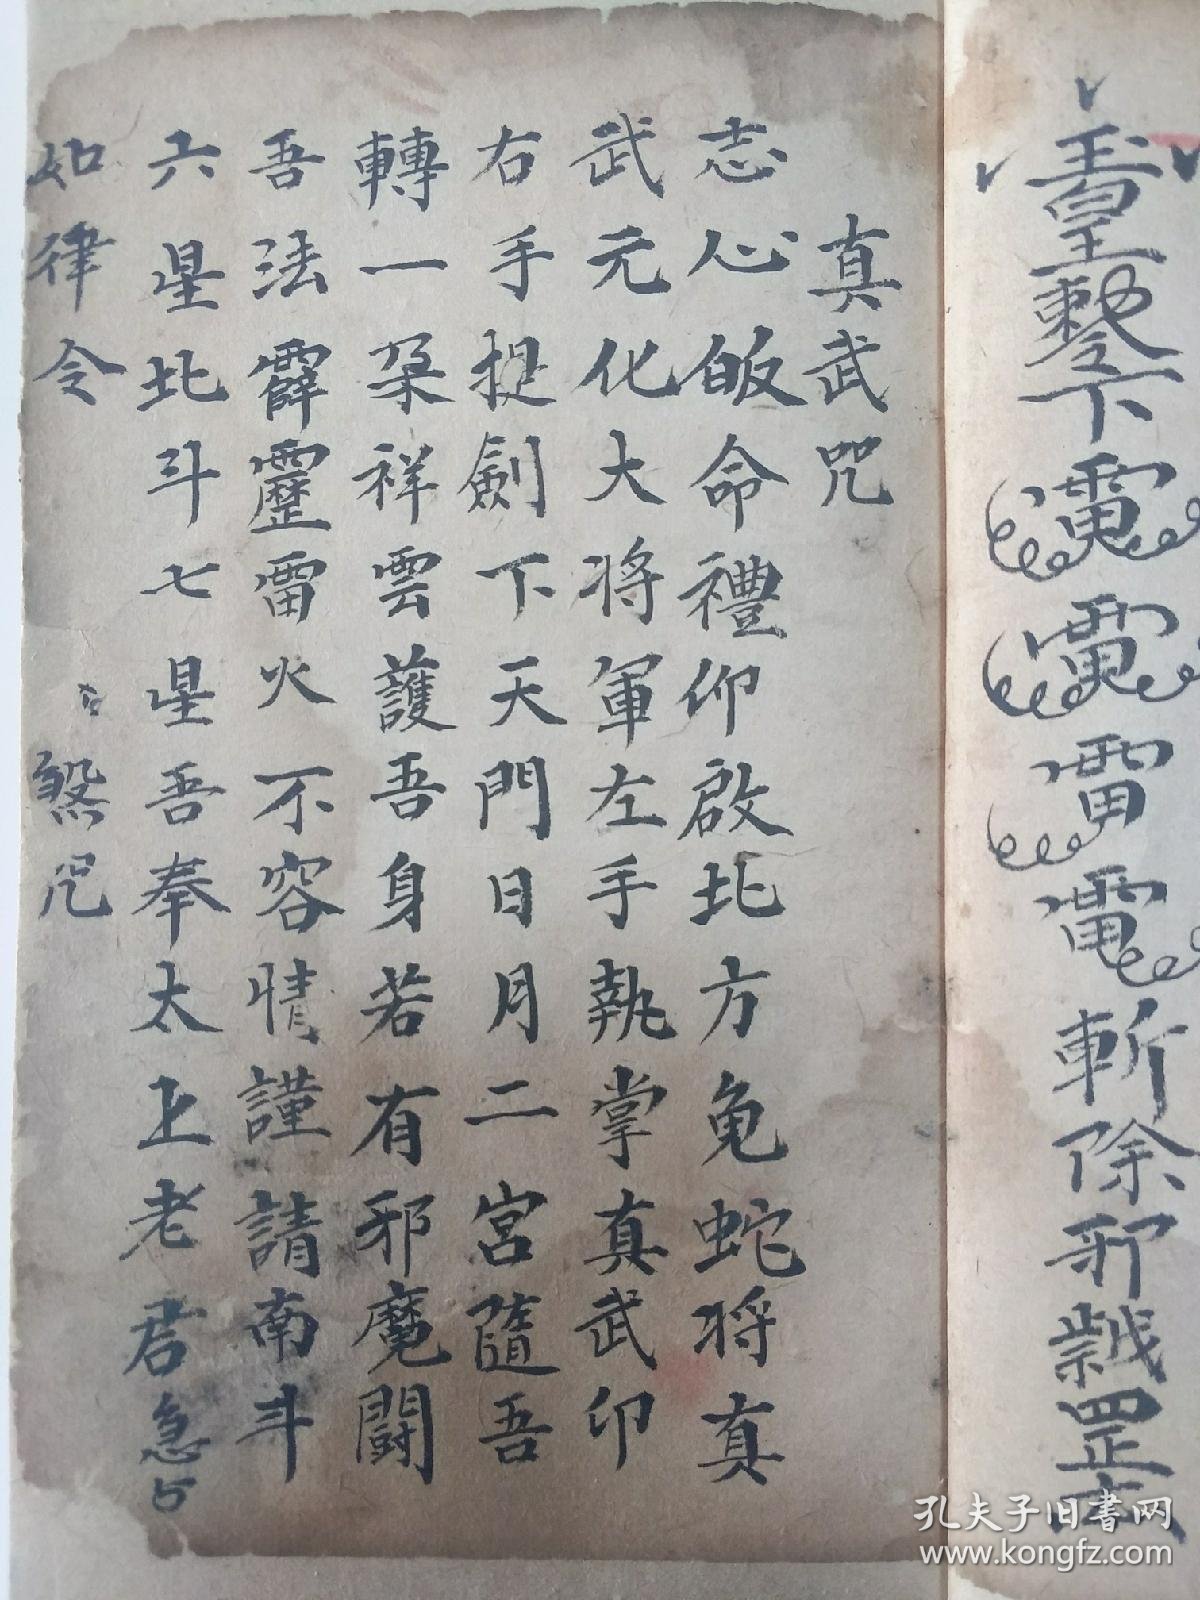 下
斬除邪
真武咒
志心皈命禮仰啟北方龟蛇将真
武元化大将軍左手執掌真武印
右手提劍下天門日月二宮隨吾
轉一朶祥雲護吾身若有邪魔闘
吾法霹靂雷火不容情謹請南斗
六星北斗七星吾奉太上老君急々
如律令 煞咒
孔夫子旧书网
www.kongfz.com